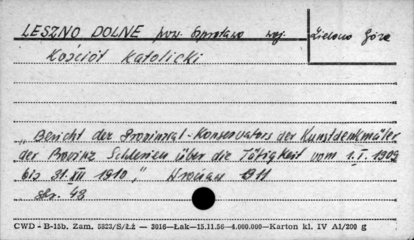 LESZNO DOLNE pow. Szprotawa woj. Zielona Góra
Kościół Katolicki
„Bericht der Provinzial-Konservators der Kunstdenkmäler
der Provinz Schlesien über die Tätigkeit vom 1.I.1909
bis 31.XII 1910," Wrocław 1911
str. 43
CWD - B-15b. Zam. 5823/S/Łż — 3016—Łak—15.11.56—4.000.000—Karton kl. IV A1/200 g